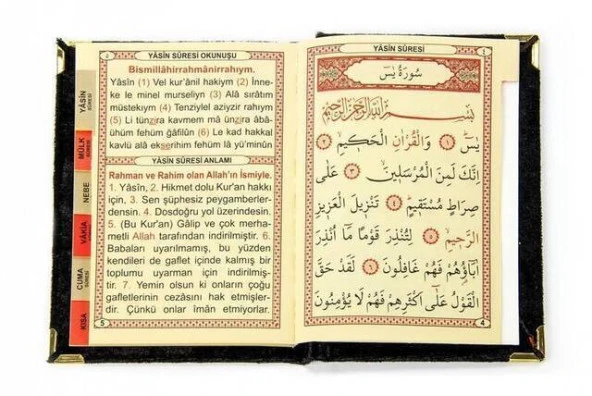 YÂSİN SÛRESİ OKUNUŞU
Bismillâhirrahmânirrahıym.
Yâsîn (1) Vel kur'ânil hakiym (2) İnne-
ke le minel murseliyn (3) Alâ sırâtım
müstekıym (4) Tenziylel aziyzir rahıym
(5) Li tünzira kavmem mâ ünzira âbâ-
ühüm fehüm gâfilûn (6) Le kad hakkal
kavlü alâ ekserihim fehüm lâ yü'minûn
YÂSİN SÛRESİ ANLAMI
Rahman ve Rahim olan Allah'ın İsmiyle.
1. Yâsîn, 2. Hikmet dolu Kur'an hakkı
için, 3. Sen şüphesiz peygamberler-
densin. 4. Dosdoğru yol üzerindesin.
5. (Bu Kur'an) Gâlip ve çok merha-
metli Allah tarafından indirilmiştir. 6.
Babaları uyarılmamış, bu yüzden
kendileri de gaflet içinde kalmış bir
toplumu uyarman için indirilmiş-
tir. 7. Yemin olsun ki onların çoğu
gafletlerinin cezâsını hak etmişler-
dir. Çünkü onlar îmân etmiyorlar.
5
YÂSİN
SÛRESİ
MÜLK
SÛRESİ
NEBE
VÂKIA
CUMA
SÛRESİ
KISA
YÂSİN SÛRESİ
٤
سُورَةُ يٰسٓ
بِسْمِ اللّٰهِ الرَّحْمٰنِ الرَّحِيمِ
يٰسٓ ﴿١﴾ وَالْقُرْاٰنِ الْحَكِيمِ ﴿٢﴾
اِنَّكَ لَمِنَ الْمُرْسَلِينَ ﴿٣﴾ عَلٰى
صِرَاطٍ مُسْتَقِيمٍ ﴿٤﴾ تَنْزِيلَ الْعَزِيزِ
الرَّحِيمِ ﴿٥﴾ لِتُنْذِرَ قَوْمًا مَٓا اُنْذِرَ
اٰبَٓاؤُهُمْ فَهُمْ غَافِلُونَ ﴿٦﴾ لَقَدْ حَقَّ
الْقَوْلُ عَلٰٓى اَكْثَرِهِمْ فَهُمْ لَا يُؤْمِنُونَ
4